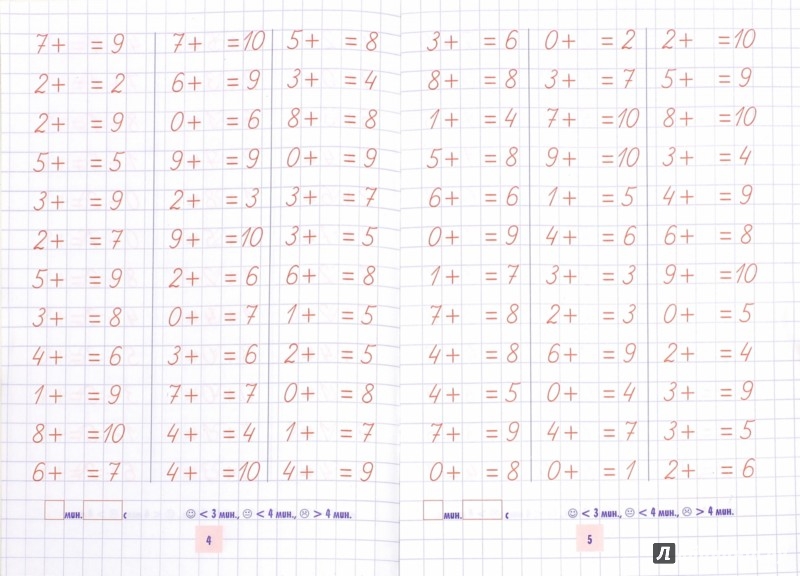 7+ =9 7+ =10 5+ =8
2+ =2 6+ =9 3+ =4
2+ =9 0+ =6 8+ =8
5+ =5 9+ =9 0+ =9
3+ =9 2+ =3 3+ =7
2+ =7 9+ =10 3+ =5
5+ =9 2+ =6 6+ =8
3+ =8 0+ =7 1+ =5
4+ =6 3+ =6 2+ =5
1+ =9 7+ =7 0+ =8
8+ =10 4+ =4 1+ =7
6+ =7 4+ =10 4+ =9
мин. с ☺ < 3 мин., 😐 < 4 мин., ☹ > 4 мин.
4
3+ =6 0+ =2 2+ =10
8+ =8 3+ =7 5+ =9
1+ =4 7+ =10 8+ =10
5+ =8 9+ =10 3+ =4
6+ =6 1+ =5 4+ =9
0+ =9 4+ =6 6+ =8
1+ =7 3+ =3 9+ =10
7+ =8 2+ =3 0+ =5
4+ =8 6+ =9 2+ =4
4+ =5 0+ =4 3+ =9
7+ =9 4+ =7 3+ =5
0+ =8 0+ =1 2+ =6
мин. с ☺ < 3 мин., 😐 < 4 мин., ☹ > 4 мин.
5
Л